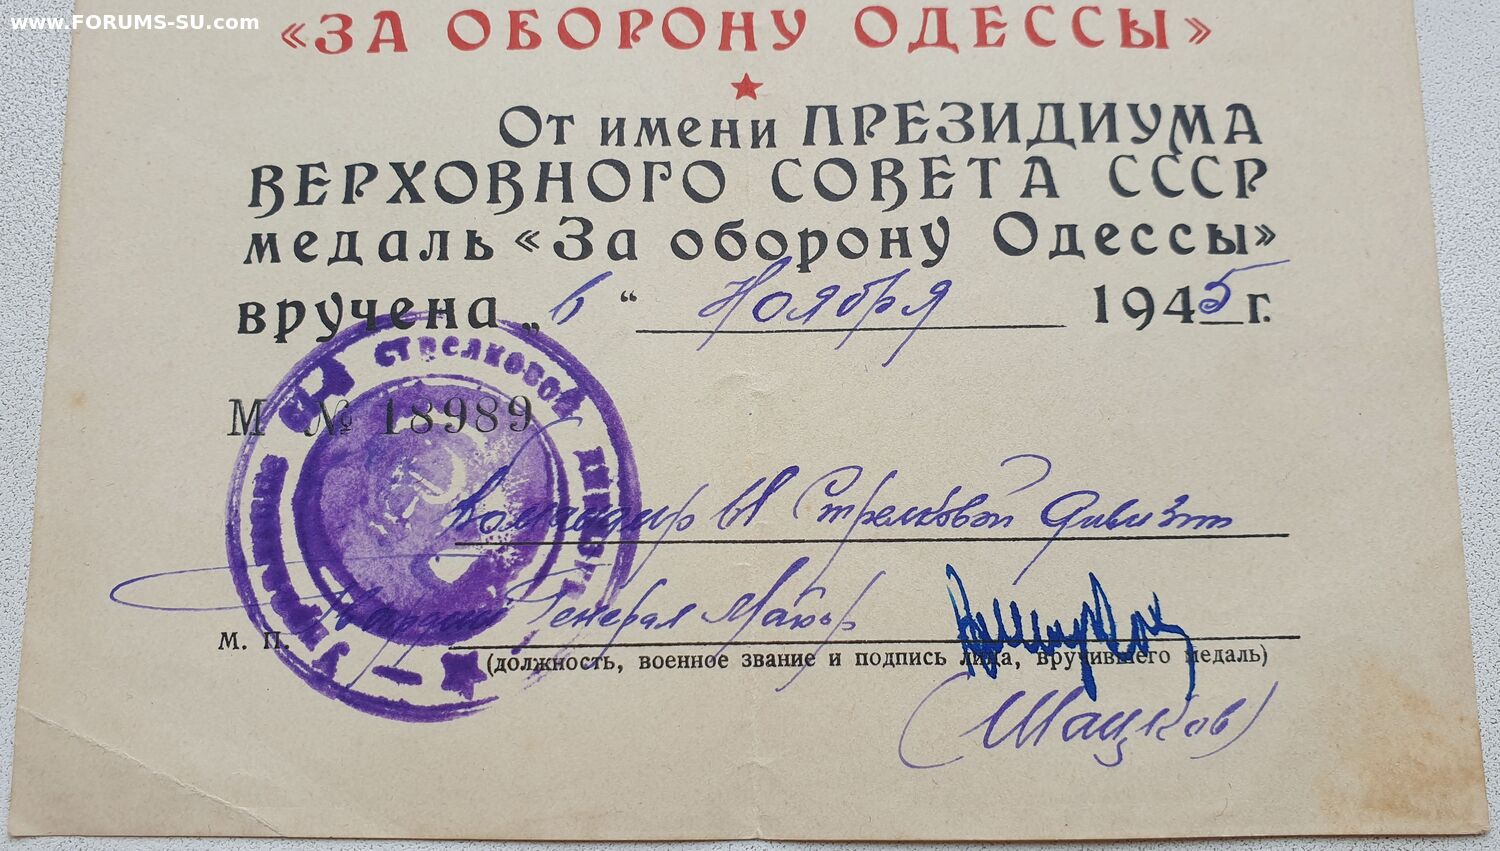 www.FORUMS-SU.com
«ЗА ОБОРОНУ ОДЕССЫ»
От имени ПРЕЗИДИУМА
ВЕРХОВНОГО СОВЕТА СССР
медаль «За оборону Одессы»
вручена „6“ Ноября 1945 г.
М № 18989
стрелковой
Управление
Командир 61 Стрелковой Дивизии
Гвардии Генерал Майор
М. П.
(должность, военное звание и подпись лица, вручившего медаль)
(Шацков)